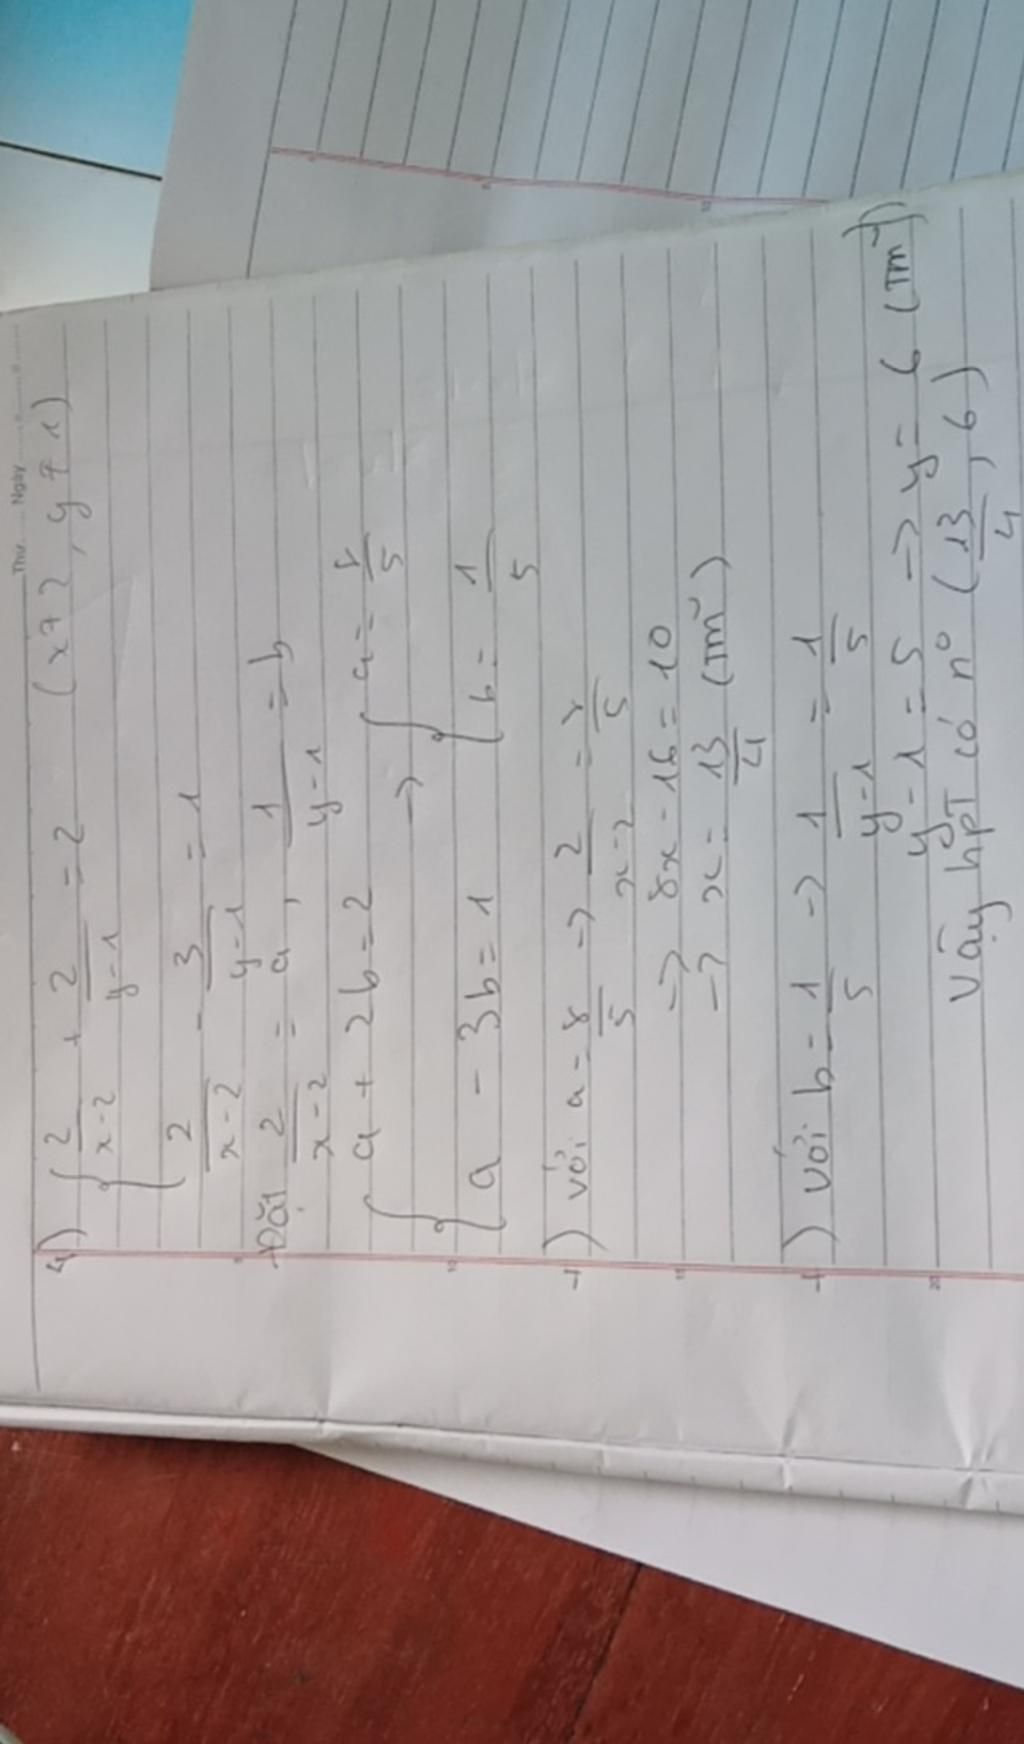 Thứ ..... Ngày ..........
4) { 2/(x-2) + 2/(y-1) = 2 (x ≠ 2, y ≠ 1)
2/(x-2) - 3/(y-1) = 1
Đặt 2/(x-2) = a, 1/(y-1) = b
{ a + 2b = 2 -> { a = 8/5
a - 3b = 1 b = 1/5
+) với a = 8/5 -> 2/(x-2) = 8/5
=> 8x - 16 = 10
-> x = 13/4 (TM)
+) với b = 1/5 -> 1/(y-1) = 1/5
y - 1 = 5 -> y = 6 (TM)
Vậy hpT có n⁰ (13/4, 6)